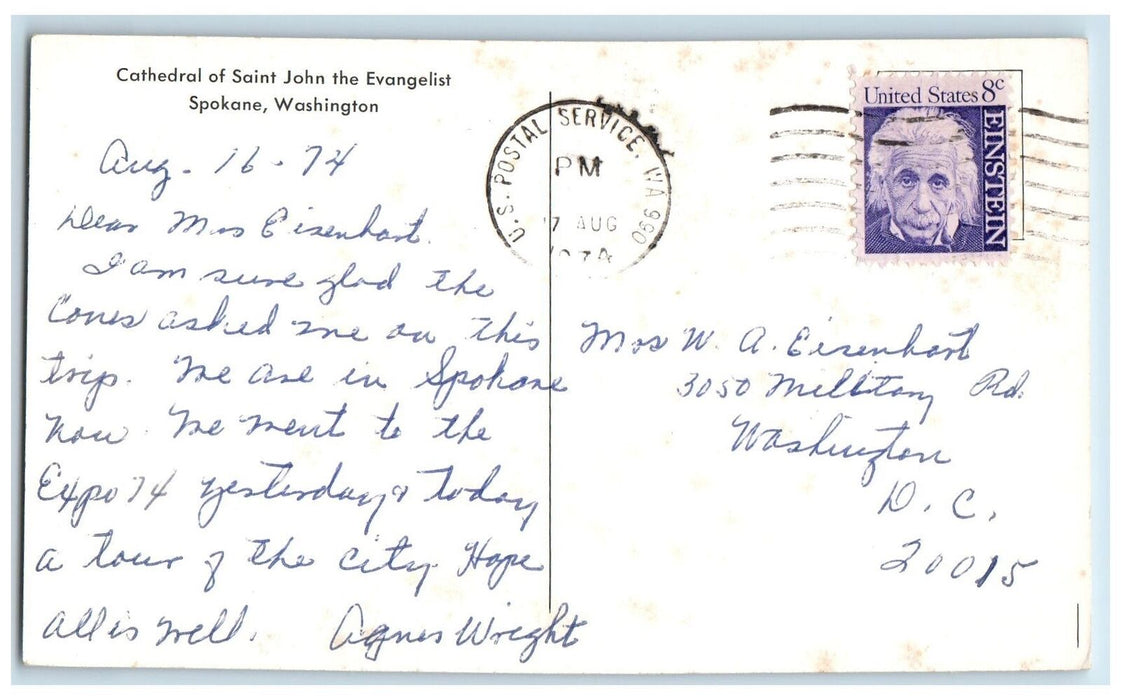 Cathedral of Saint John the Evangelist
Spokane, Washington
Aug. 16 - 74
Dear Mrs Eisenhart.
I am sure glad the
Cones asked me on this
trip. We are in Spokane
now. We went to the
Expo 74 yesterday & today
a tour of the city. Hope
all is well. Agnes Wright
U.S. POSTAL SERVICE, WA 990
PM
17 AUG
1974
United States 8c
EINSTEIN
Mrs W. A. Eisenhart
3050 Military Rd.
Washington
D. C.
20015